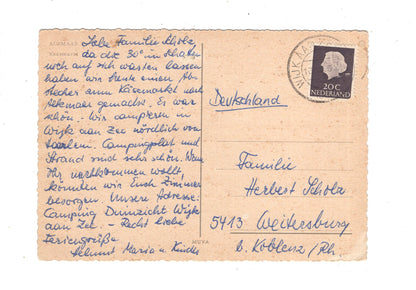 Liebe Familie Scholz,
da die 30° im Schatten
noch auf sich warten lassen
haben wir heute einen Ab-
stecher zum Käsemarkt nach
Alkmaar gemacht. Es war
schön. Wir campieren in
Wijk aan Zee nördlich von
Haarlem. Campingplatz und
Strand sind sehr schön. Wenn
Ihr nachkommen wollt,
könnten wir Euch Zimmer
besorgen. Unsere Adresse:
Camping Duinzicht Wijk
aan Zee. - Recht liebe
Feriengrüße
Helmut Maria u. Kinder
ALKMAAR
WIJK AA
20C
NEDERLAND
Deutschland
Familie
Herbert Scholz
5413 Weitersburg
b. Koblenz / Rh.
MUVA